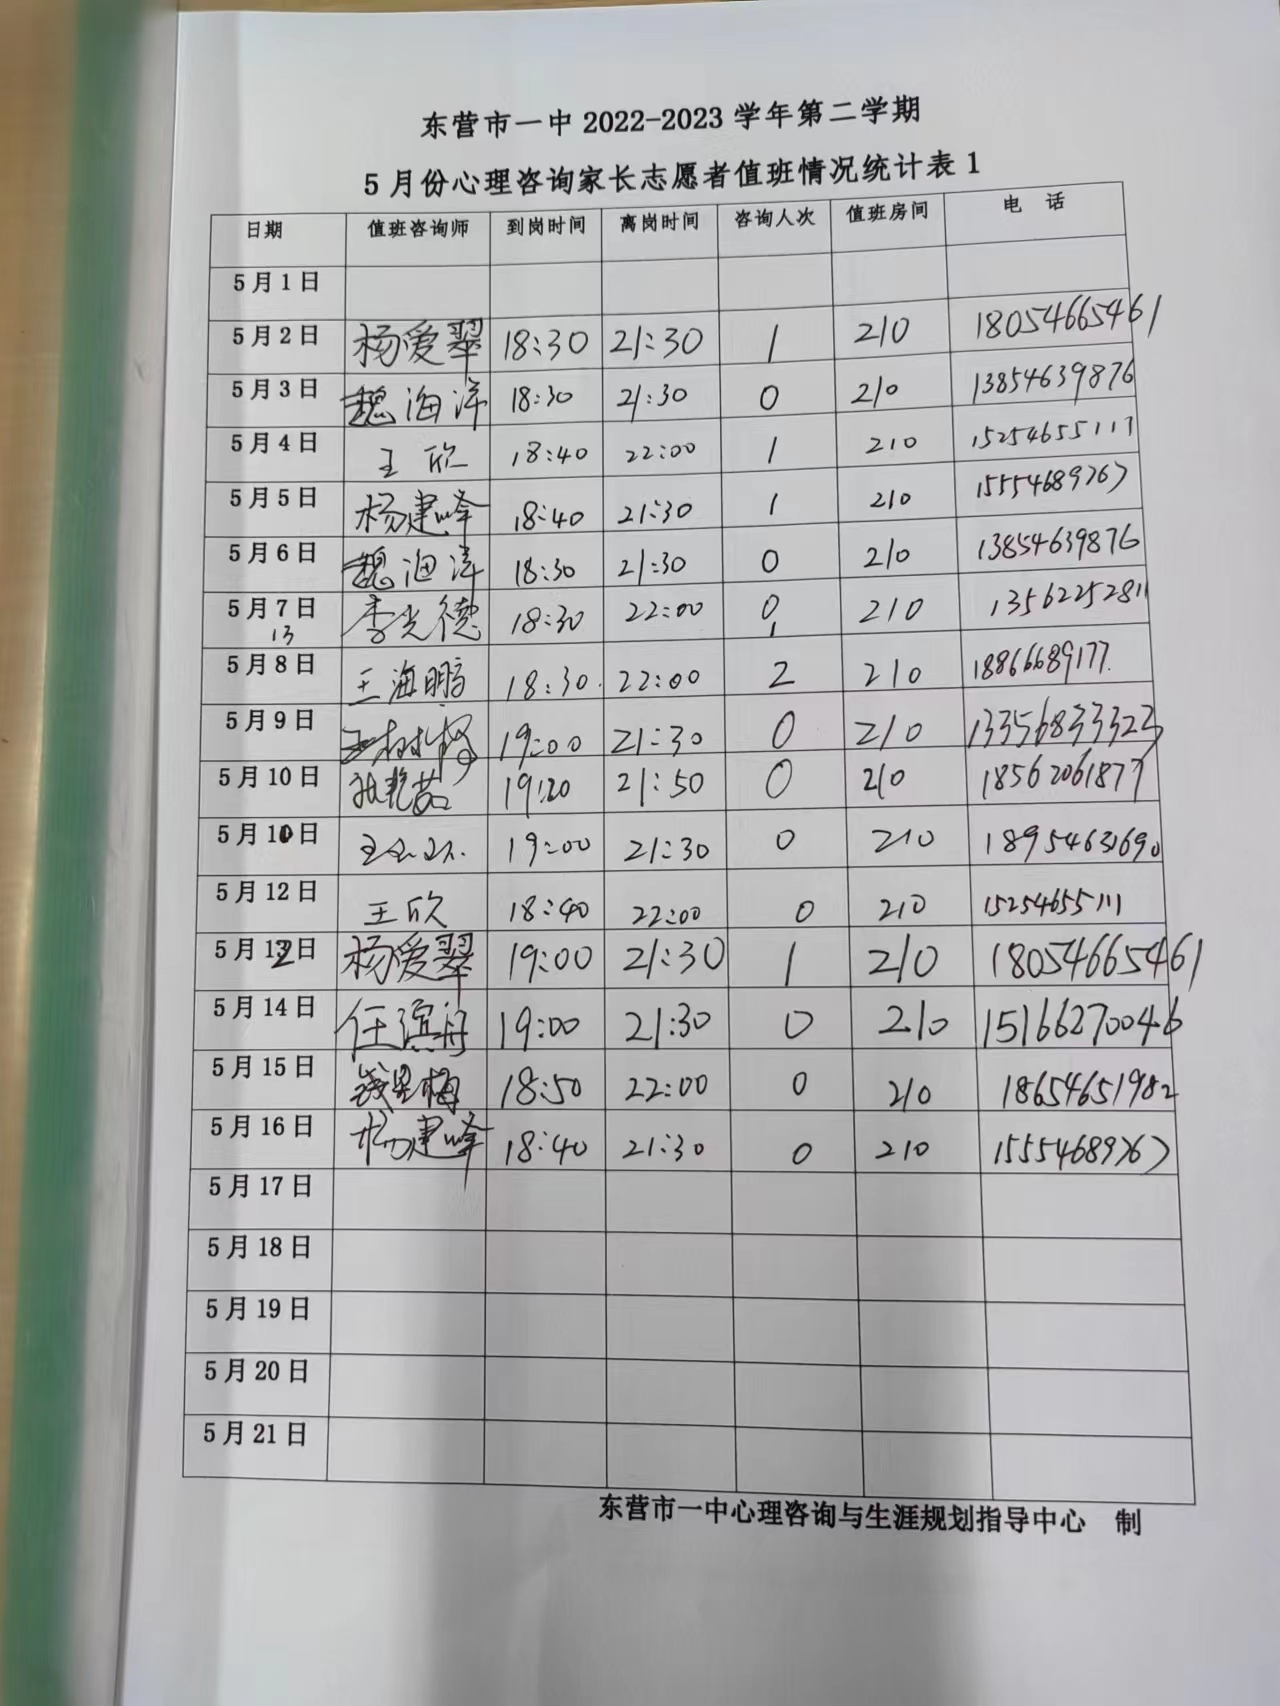 东营市一中 2022-2023 学年第二学期
5 月份心理咨询家长志愿者值班情况统计表 1
日期 值班咨询师 到岗时间 离岗时间 咨询人次 值班房间 电 话
5 月 1 日
5 月 2 日 杨爱翠 18:30 21:30 1 210 18054665461
5 月 3 日 魏海洋 18:30 21:30 0 210 13854639876
5 月 4 日 王欣 18:40 22:00 1 210 15254655111
5 月 5 日 杨建峰 18:40 21:30 1 210 15554689767
5 月 6 日 魏海洋 18:30 21:30 0 210 13854639876
5 月 7 日 李光德 18:30 22:00 0 210 13562252811
13 1
5 月 8 日 王海鹏 18:30 22:00 2 210 18866689177
5 月 9 日 19:00 21:30 0 210 13356833323
5 月 10 日 19:20 21:50 0 210 18562061877
5 月 10日 19:00 21:30 0 210 18954631690
5 月 12 日 王欣 18:40 22:00 0 210 15254655111
5 月 12日 杨爱翠 19:00 21:30 1 210 18054665461
5 月 14 日 任滨舟 19:00 21:30 0 210 15166270046
5 月 15 日 18:50 22:00 0 210 18654651982
5 月 16 日 杨建峰 18:40 21:30 0 210 15554689767
5 月 17 日
5 月 18 日
5 月 19 日
5 月 20 日
5 月 21 日
东营市一中心理咨询与生涯规划指导中心 制